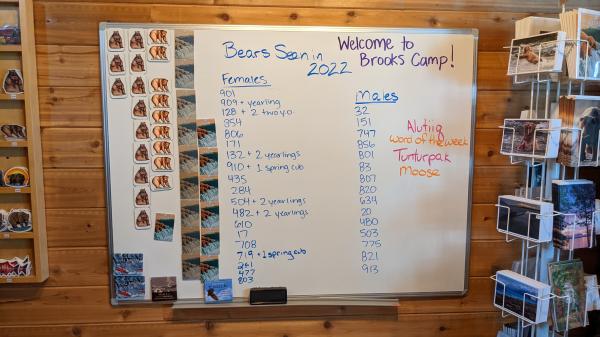 Bears Seen in
2022
Welcome to
Brooks Camp!
Females
901
909 + yearling
128 + 2 two y.o.
354
806
171
132 + 2 yearlings
910 + 1 spring cub
435
284
504 + 2 yearlings
482 + 2 yearlings
610
17
708
719 + 1 spring cub
261
477
803
Males
32
151
747
856
801
83
807
820
634
20
480
503
775
821
913
Alutiiq
word of the week
Tunturpak
Moose